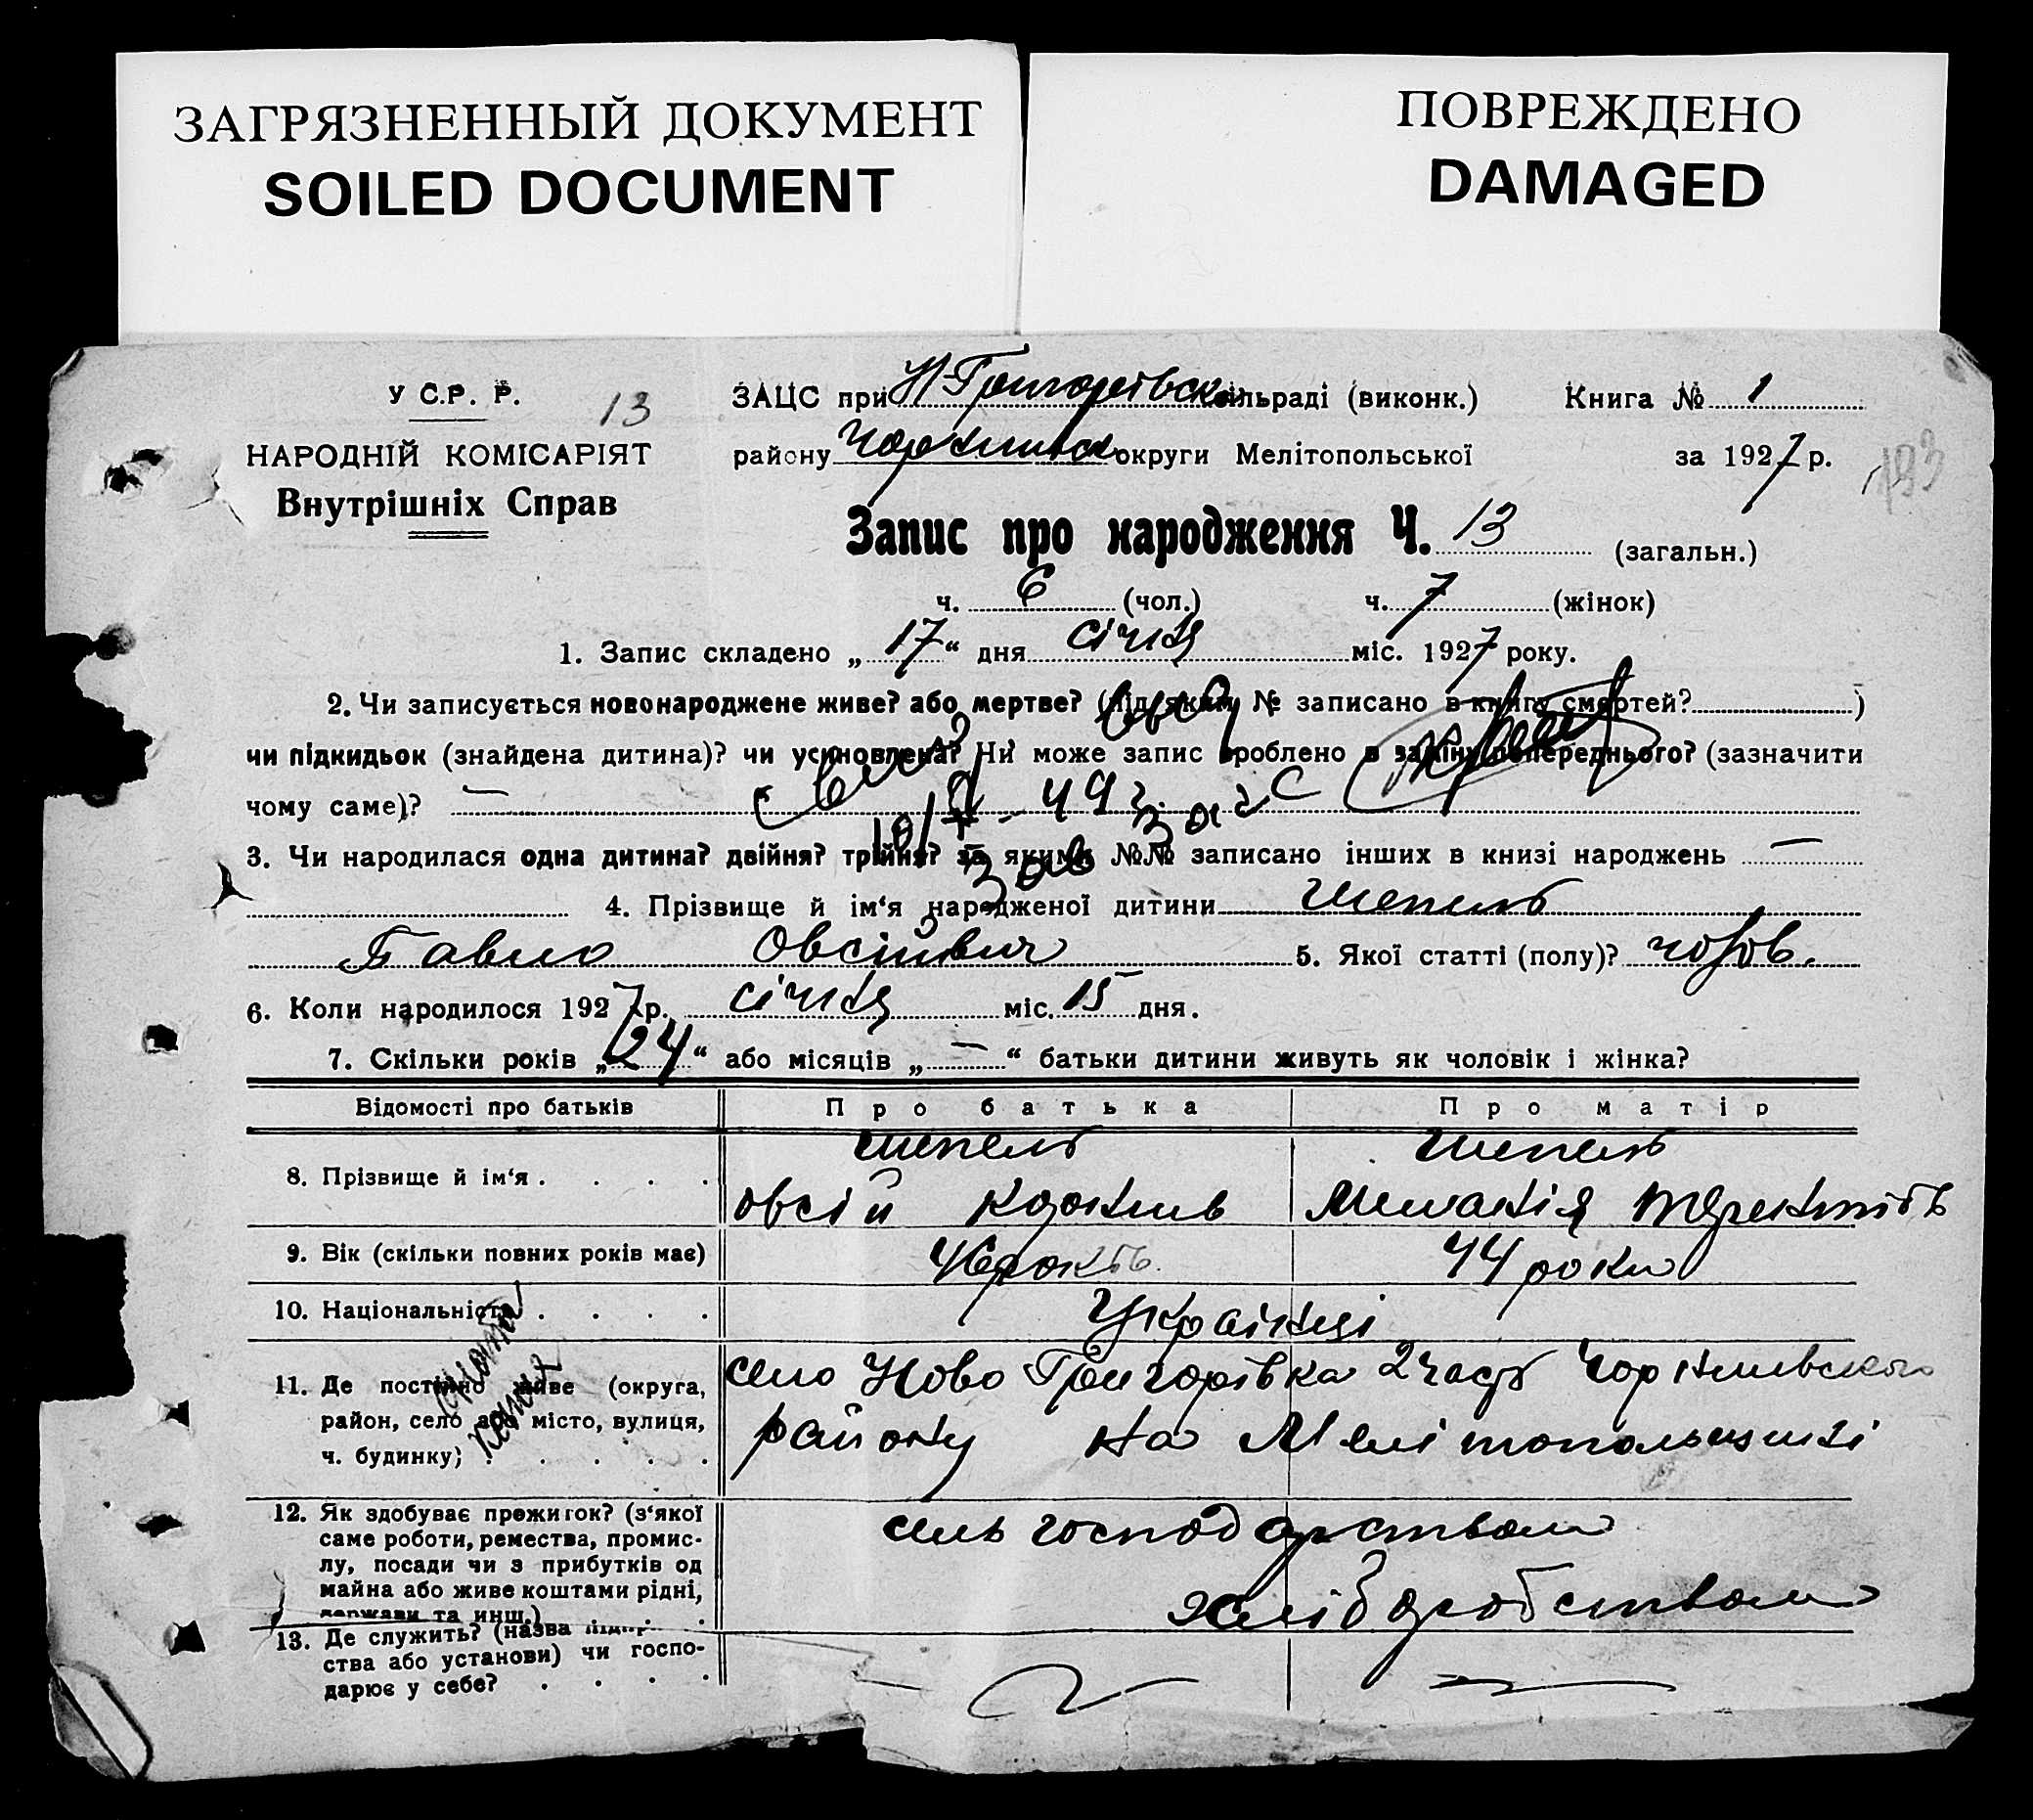 ЗАГРЯЗНЕННЫЙ ДОКУМЕНТ
SOILED DOCUMENT
ПОВРЕЖДЕНО
DAMAGED
У С.Р.Р.
13
ЗАЦС при Н-Григорівськ сільраді (виконк.) Книга № 1
НАРОДНІЙ КОМІСАРІЯТ
Внутрішніх Справ
району округи Мелітопольської за 1927 р.
193
Запис про народження Ч. 13 (загальн.)
ч. 6 (чол.) ч. 7 (жінок)
1. Запис складено „17“ дня січня міс. 1927 року.
2. Чи записується новонароджене живе? або мертве? (під яким № записано в книгу смертей? )
чи підкидьок (знайдена дитина)? чи усиновлена? Чи може запис зроблено в заміну попереднього? (зазначити
чому саме)? — 49 г.
3. Чи народилася одна дитина? двійня? трійня? за якими №№ записано інших в книзі народжень —
4. Прізвище й ім‘я народженої дитини Шепель
Павло Овсійович 5. Якої статті (полу)? чолов.
6. Коли народилося 1927 р. січня міс. 15 дня.
7. Скільки років „24“ або місяців „—“ батьки дитини живуть як чоловік і жінка?
Відомості про батьків Про батька Про матір
8. Прізвище й ім‘я . . . . Шепель Шепель
Овсій Меланія
9. Вік (скільки повних років має) 46 років. 44 роки
10. Національність . . . . Українці
11. Де постійно живе (округа, район, село або місто, вулиця, ч. будинку) . . . . село Ново Григорівка 2 часть
району на Мелітопольщині
знята
копія
12. Як здобуває прожиток? (з‘якої саме роботи, ремества, промислу, посади чи з прибутків од майна або живе коштами рідні, держави та инш.) . . сель господарством
хліборобством
13. Де служить? (назва підпр-
ства або установи) чи госпо-
дарює у себе? . . . . —